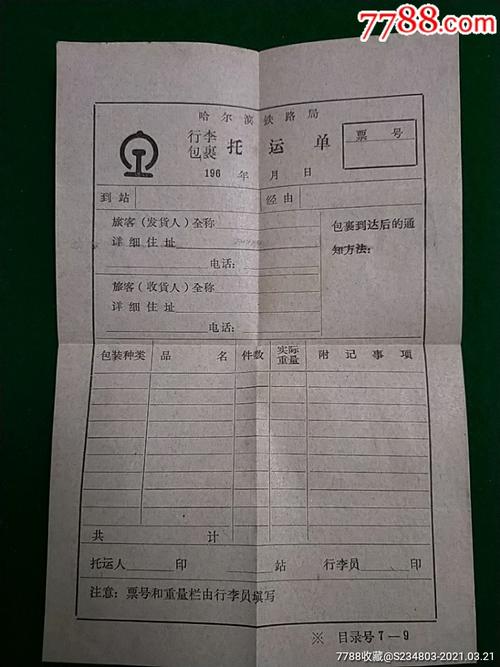 7788.com
中国收藏热线
哈尔滨铁路局
行李
包裹 托运单
票号
196 年 月 日
到站 经由
旅客（发货人）全称
详细住址
电话：
包裹到达后的通
知方法：
旅客（收货人）全称
详细住址
电话：
包装种类 品名 件数 实际重量 附记事项
共计
托运人 印 站 行李员 印
注意：票号和重量栏由行李员填写
※ 目录号7—9
7788收藏@S234803-2021.03.21